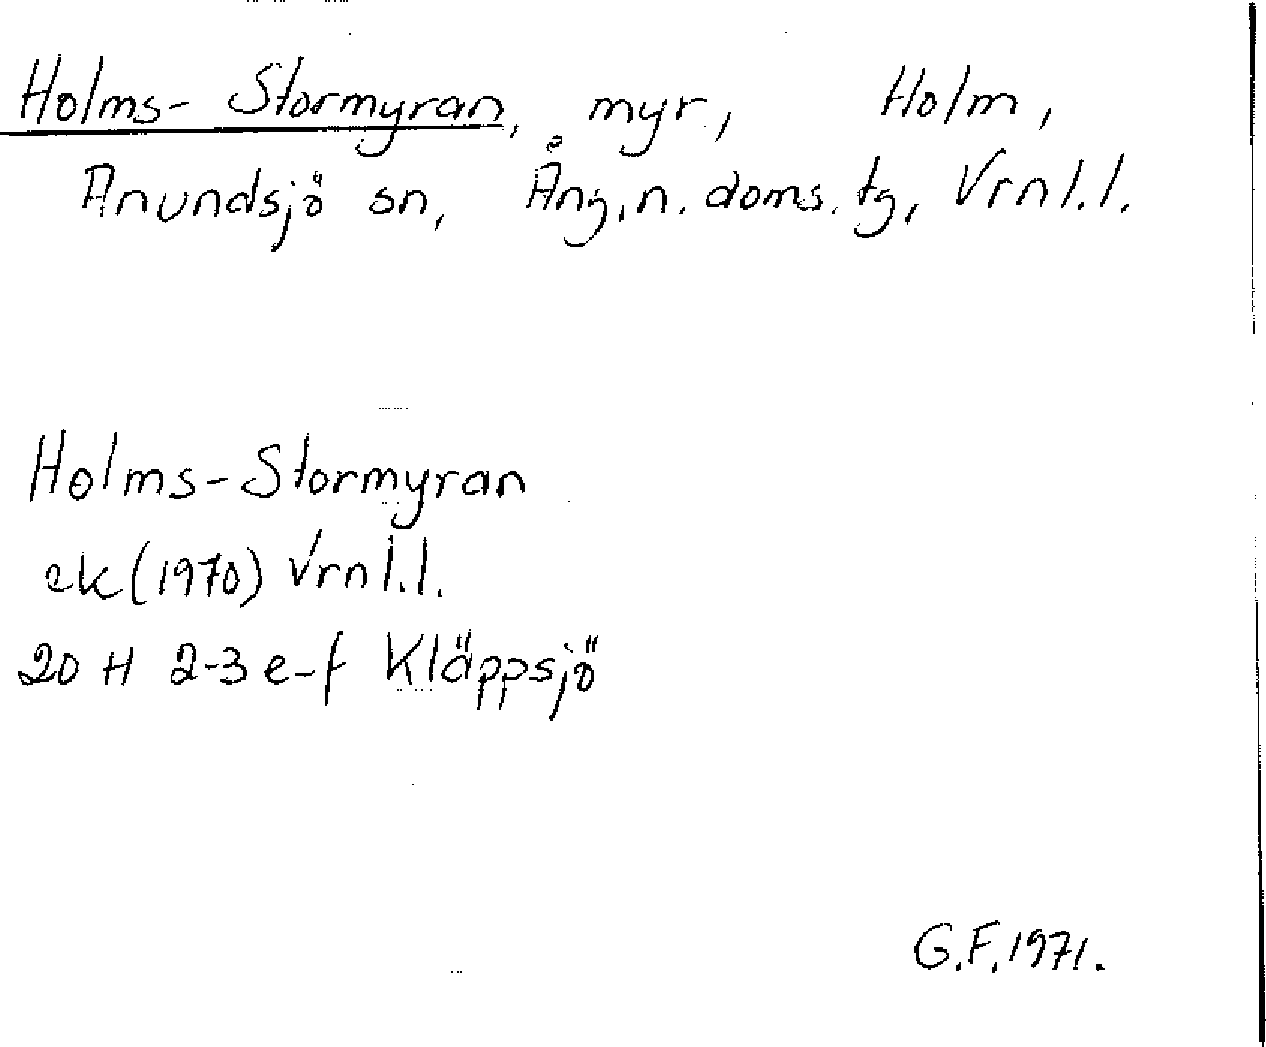 Holms-Stormyran, myr, Holm,
Anundsjö sn, Ång.n.doms.tg, Vrnl.l.
Holms-Stormyran
ek(1970) Vrnl.l.
20 H 2-3 e-f Kläppsjö
G.F.1971.